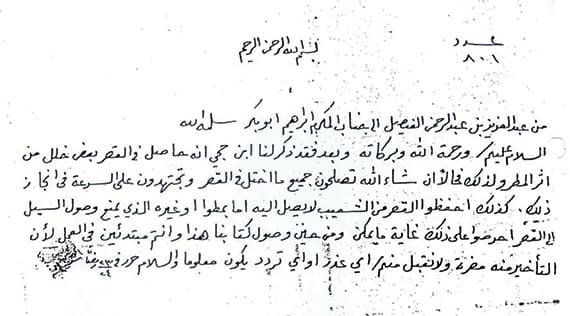 عدد
٨٠١
بسم الله الرحمن الرحيم
من عبدالعزيز بن عبدالرحمن الفيصل الى جناب المكرم ابراهيم ابو بكر سلمه الله
السلام عليكم ورحمة الله وبركاته وبعد فقد ذكر لنا ابن جمي انه حاصل في القصر بعض خلل من
اثر المطر ولذلك فالآن شاء الله تصلحون جميع ما اختل في القصر وتجتهدون على السرعة في انجاز
ذلك. كذلك احفظوا القصر من الشعيب لا يصل اليه اما بمطوا او غيره الذي يمنع وصول السيل
الى القصر احرصوا على ذلك غاية ما يمكن ومن حين وصول كتابنا هذا وانتم مبتدئين في العمل لأن
التأخير منه مضرة ولا نقبل منكم اي عذر او اي تردد يكون معلوما والسلام حرر في ٢٣